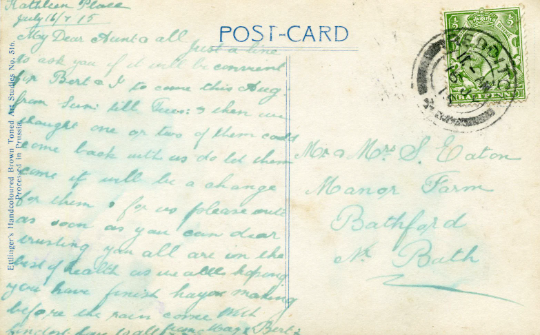 Kathleen Place
July 16/7 15
My Dear Aunt & all just a line
to ask you if it will be convenient
for Bert & I to come this Aug.
from Sun: till Tues: & then we
thought one or two of them could
come back with us do let them
come it will be a change
for them & for us please write
as soon as you can dear
trusting you all are in the
best of health as we all hoping
you have finish haymaking
before the rain come With
fondest love to all from Bert
POST-CARD
Ettlinger's Handcoloured Brown Tuned Art Studies No. 816.
Processed in Prussia.
REDDIT
Mr & Mrs S. Eaton
Manor Farm
Bathford
Nr Bath